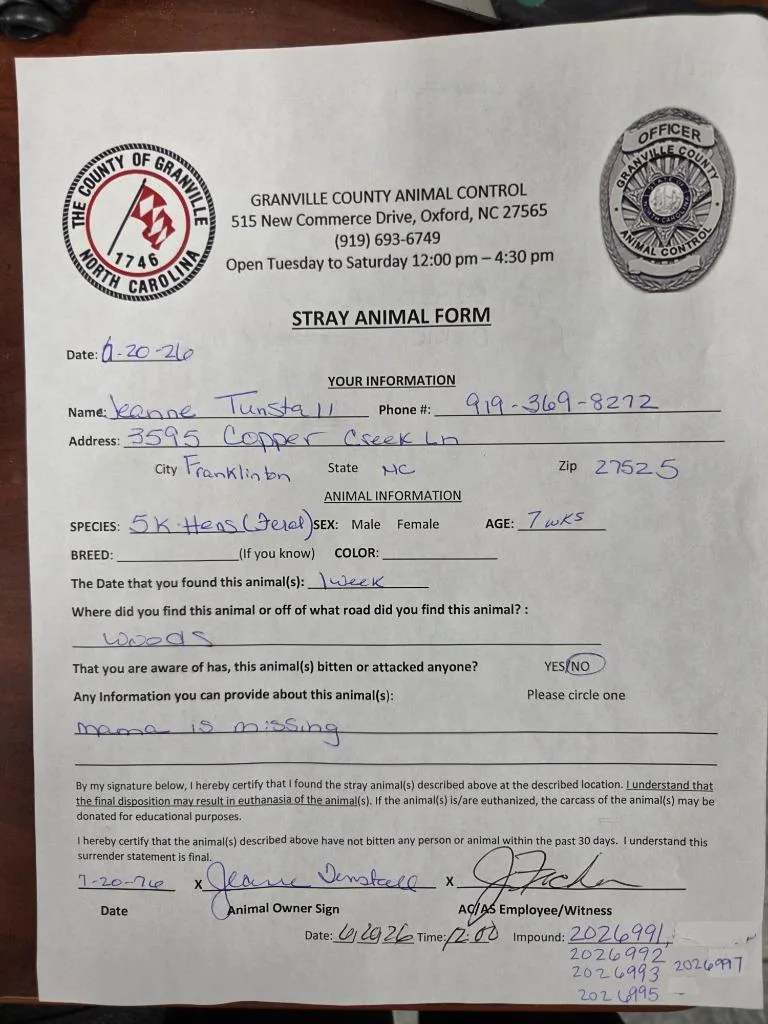 THE COUNTY OF GRANVILLE
1746
NORTH CAROLINA
OFFICER
GRANVILLE COUNTY
ANIMAL CONTROL
GRANVILLE COUNTY ANIMAL CONTROL
515 New Commerce Drive, Oxford, NC 27565
(919) 693-6749
Open Tuesday to Saturday 12:00 pm – 4:30 pm
STRAY ANIMAL FORM
Date: 6-20-26
YOUR INFORMATION
Name: Jeanne Tunstall Phone #: 919-369-8272
Address: 3595 Copper Creek Ln
City Franklinton State NC Zip 27525
ANIMAL INFORMATION
SPECIES: 5 Kittens (Feral) SEX: Male Female AGE: 7 wks
BREED: (If you know) COLOR:
The Date that you found this animal(s): 1 week
Where did you find this animal or off of what road did you find this animal? :
woods
That you are aware of has, this animal(s) bitten or attacked anyone? YES/NO
Any Information you can provide about this animal(s): Please circle one
mama is missing
By my signature below, I hereby certify that I found the stray animal(s) described above at the described location. I understand that
the final disposition may result in euthanasia of the animal(s). If the animal(s) is/are euthanized, the carcass of the animal(s) may be
donated for educational purposes.
I hereby certify that the animal(s) described above have not bitten any person or animal within the past 30 days. I understand this
surrender statement is final.
x Jeanne Tunstall x
Date Animal Owner Sign AC/AS Employee/Witness
Date: 6/20/26 Time: 12:00 Impound: 2026991,
2026992
2026993 2026997
2026995